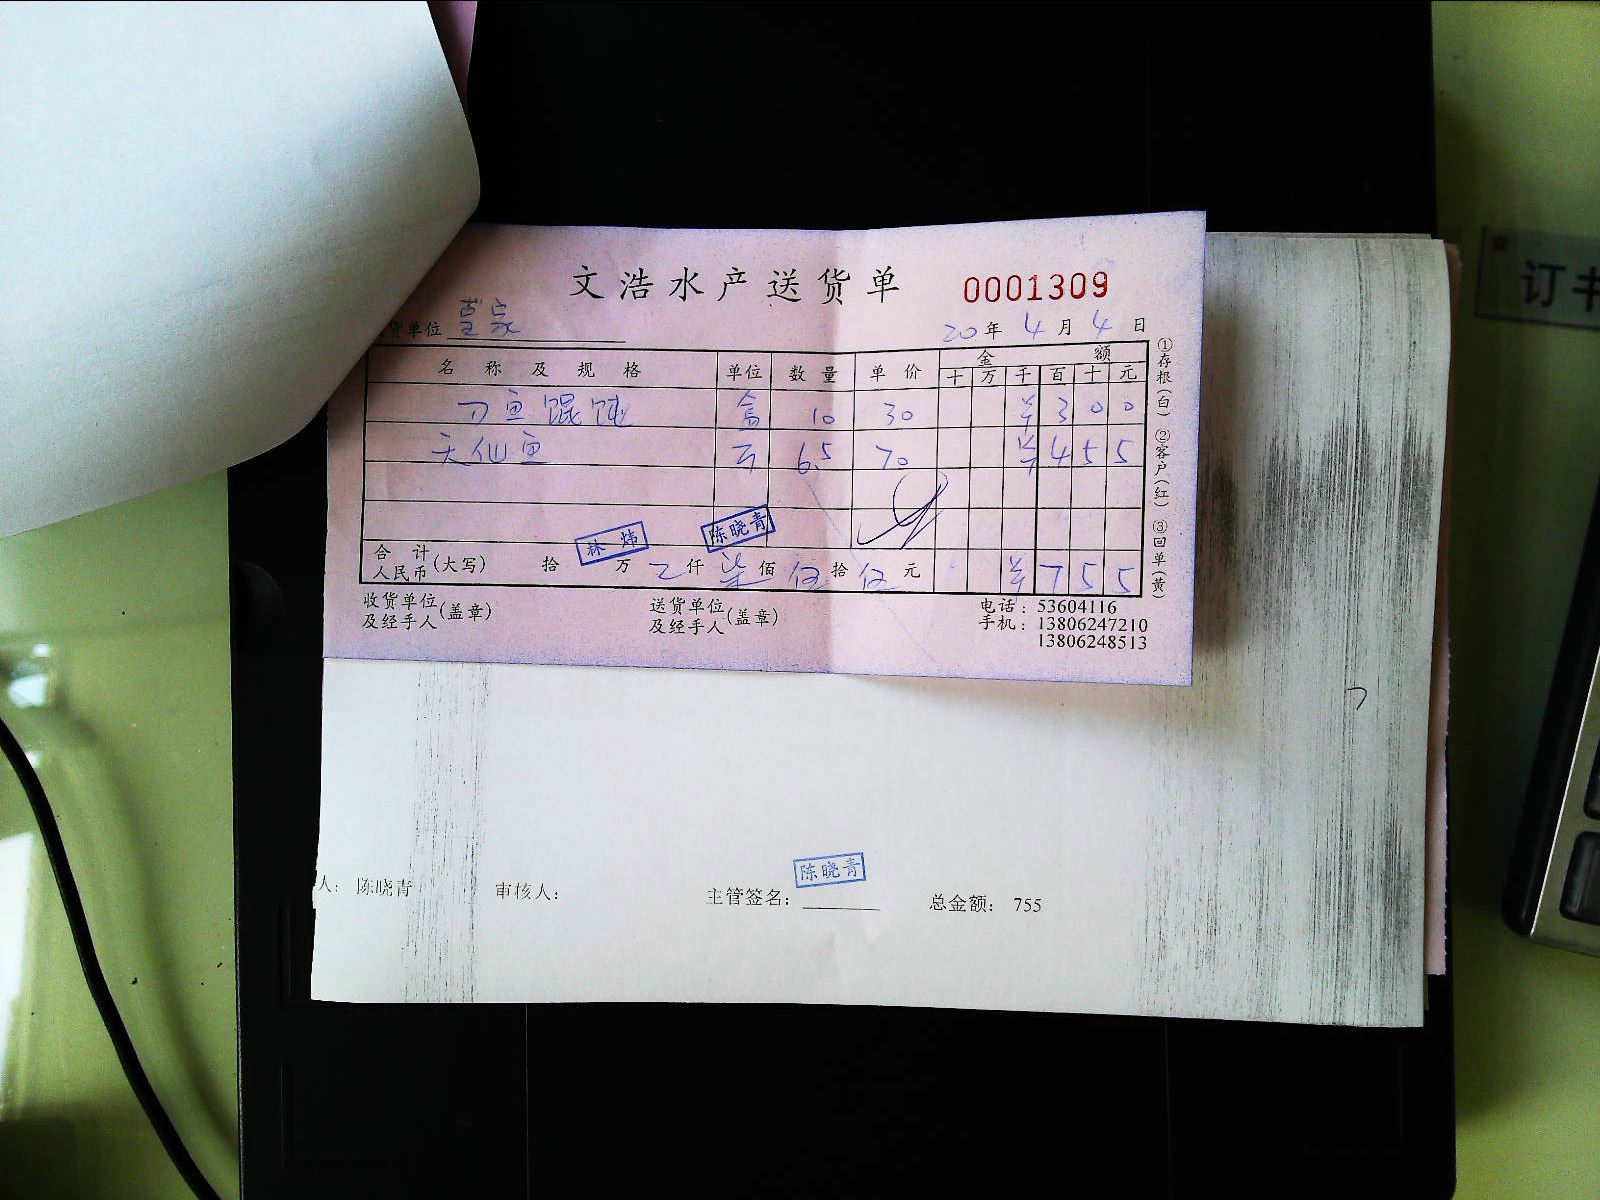 文浩水产送货单 0001309
货单位 20年4月4日
名称及规格 单位 数量 单价 金额
十 万 千 百 十 元
刀鱼馄饨 盒 10 30 ¥ 3 0 0
天仙鱼 6.5 70 ¥ 4 5 5
林炜 陈晓青
合计人民币(大写) 拾 万 仟 柒佰伍拾伍元 ¥ 7 5 5
收货单位及经手人(盖章) 送货单位及经手人(盖章) 电话:53604116
手机:13806247210
13806248513
①存根(白) ②客户(红) ③回单(黄)
陈晓青
人: 陈晓青 审核人: 主管签名: 总金额: 755
订书